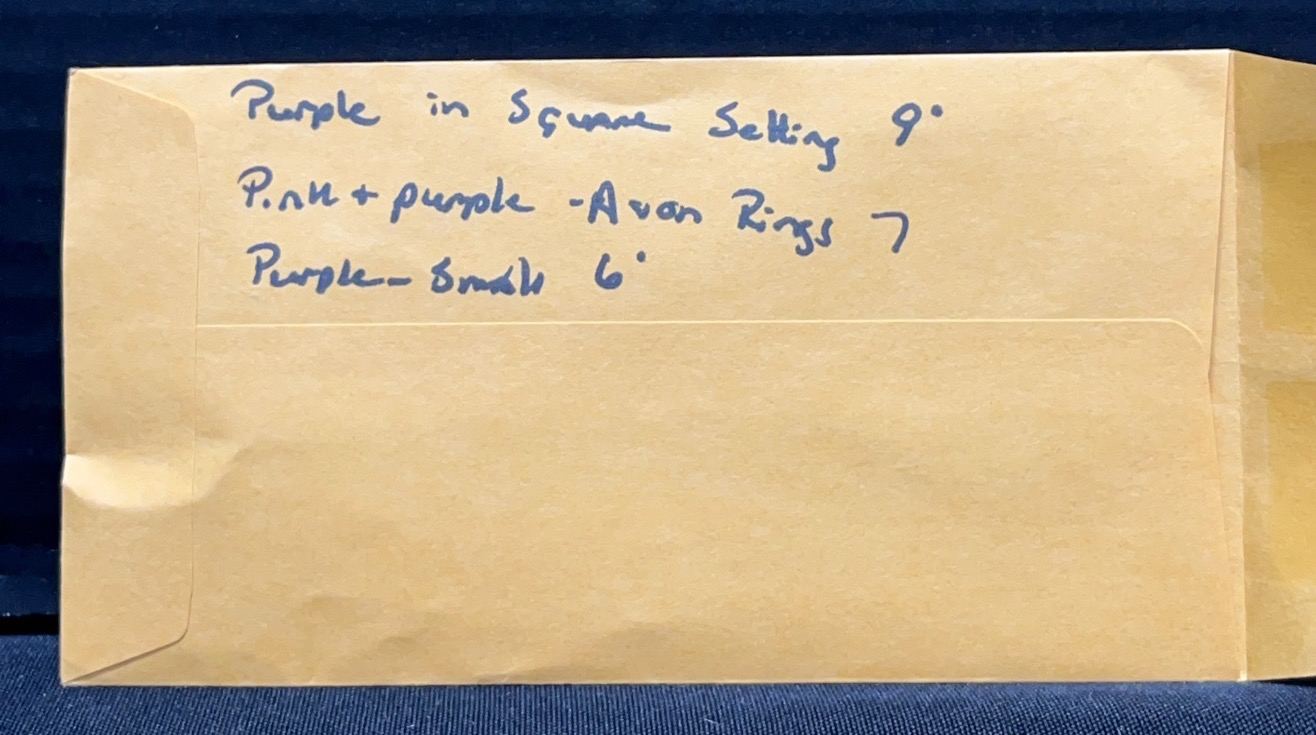 Purple in Square Setting 9°
Pink + purple - Avon Rings 7
Purple - Small 6°